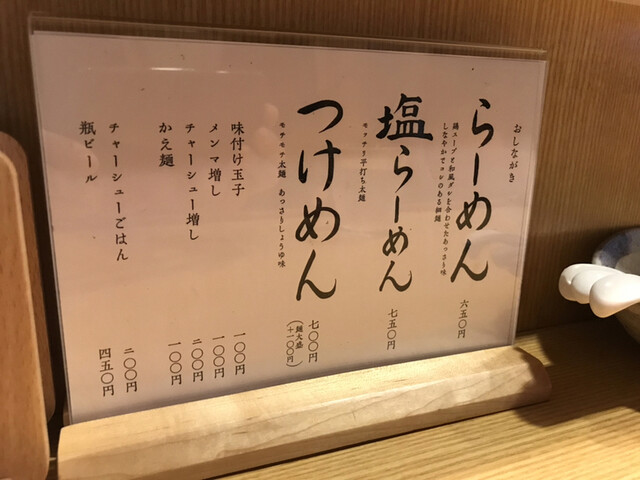 おしながき
らーめん 六五〇円
鶏スープと和風ダレを合わせたあっさり味
しなやかでコシのある細麺
塩らーめん 七五〇円
モッチリ平打ち太麺
つけめん 七〇〇円
(麺大盛
+一〇〇円)
モチモチ太麺 あっさりしょうゆ味
味付け玉子 一〇〇円
メンマ増し 一〇〇円
チャーシュー増し 二〇〇円
かえ麺 一〇〇円
チャーシューごはん 二〇〇円
瓶ビール 四五〇円